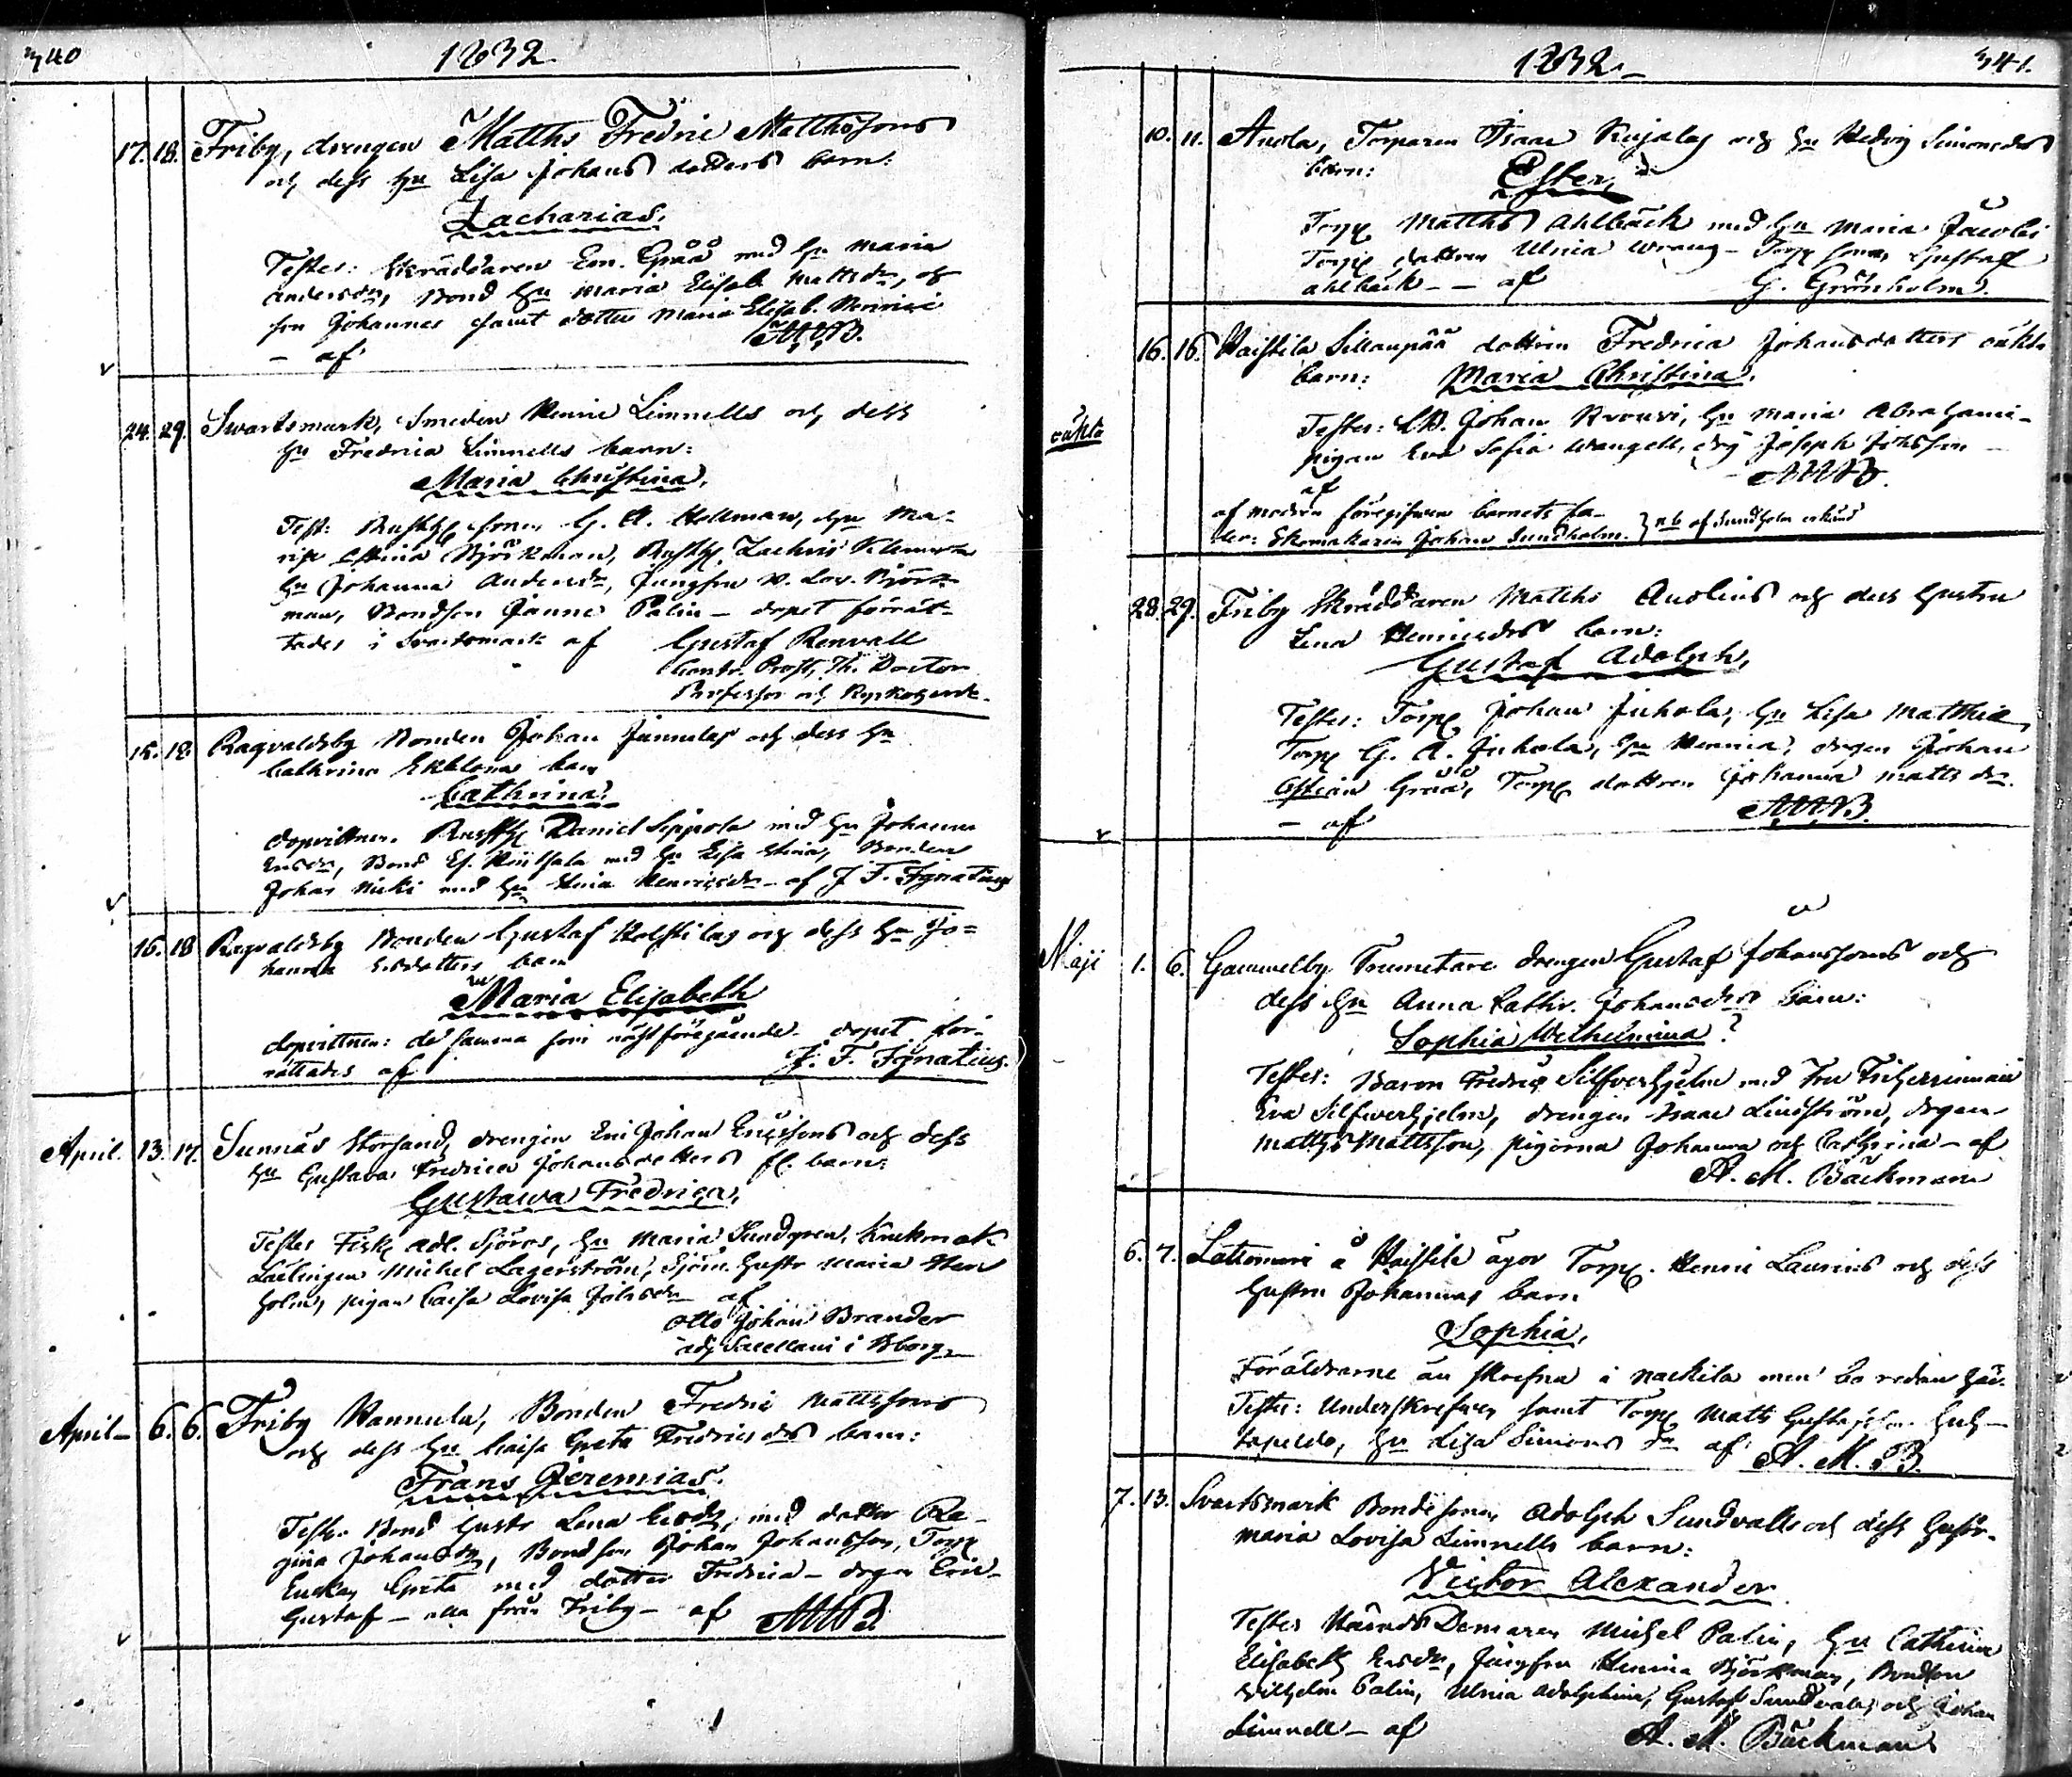 340
1832.
17. 18. Friby, drengen Matths Fredric Matthssons
och dess hu Lisa Johans dotters barn:
Zacharias.
Testes: Skräddaren Eric Gråå med hu Maria
Andersdr, Bond hu Maria Elisab. Mattsdr, och
son Johannes samt dotter Maria Elisab.
- af AMB.
24. 29. Svartsmark, Smeden Henric Limnells och dess
hu Fredrica Limnells barn:
Maria Christina.
Test: sonen G. A. Hellman, hu Ma-
ria Stina Björkman, Zachris
hu Johanna Andersdr, Jungfru Lov. Björk-
man, Bondson Janne Palin - dopet förrät-
tades i Svartsmark af Gustaf Renvall
Contr. Prost, Th. Doctor
Professor och Kyrkoherde.
15. 18. Ragvaldsby Bonden Johan Jannulas och dess hu
Cathrina Ekbloms barn
Cathrina.
dopvittnen. Daniel Seppola med hu Johanna
Ericsdr, Bond med hu Lisa Stina, Bonden
Johan med hu Stina Henricsdr - af J. F. Ignatius
16. 18 Ragvaldsby Bonden Gustaf och dess hu Jo=
hanna Ersdotters barn
Maria Elisabeth
dopvittnen: de samma som nästföregående. dopet för-
rättades af J. F. Ignatius.
April. 13. 17. Sunnäs Storsand, drengen Eric Johan Ericssons och dess
hu Gustava Fredrica Johansdotters fl. barn:
Gustava Fredrica.
Testes Fisk. Adl. Sjöros, hu Maria Sundgren, Krukmak.
Lärlingen Michel Lagerström, Sjöm. hustr Maria
holm, pigan Caisa Lovisa Johsdr af
Otto Johan Brander
adj. Sacellani i Bborg
April - 6. 6. Friby Hannula, Bonden Fredric Mattssons
och dess hu Caisa Greta Fredricsdrs barn:
Frans Jeremias.
Test. Bond hustr Lena med dotter Re-
gina Johansdr, Bondson Johan Johansson, Torp
Greta med dotter Fredrica - drgen Eric
Gustaf - alla från Friby - af AMB.
1832.
341.
10. 11. Anola, Torparen Isaac och hu Hedvig Simonsdrs
barn: Ester,
Torp Matths Ahlbäck med hu Maria Jacobi
Torp dottren Ulrica Wrang - Torp sonen Gustaf
Ahlbäck - - af G. Grönholm.
16. 16. Haistila Sillanpää dottren Fredrica Johansdotters oäkta
oäkta
barn: Maria Christina.
Testes: Johan hu Maria Abrahami -
pigan Eva Sofia Wangell, drg Joseph Johsson -
af AMB.
af modren föregifven barnets fa-
der: Skomakaren Johan Sundholm. nb af Sundholm erkänd
28. 29. Friby Skräddaren Matths Anolins och dess hustru
Lena Henricsdrs barn:
Gustaf Adolph,
Testes: Torp Johan Juhola, hu Lisa Matthiæ,
Torp G. A. Juhola, hu Henrica, drgen Johan
Gråå, Torp dottren Johanna Mattsdr.
- af AMB.
Maji 1. 6. Gammelby Trumetare drengen Gustaf Johanssons och
dess hu Anna Cathr. Johansdrs barn:
Sophia Wilhelmina?
Testes: Baron Fredric Silfverhjelm med Fru Friherrinnan
Eva Silfverhjelm, drengen Isaac Lindström, drgen
Matths Mattsson, pigorna Johanna och Cathrina - af
A. M. Bäckman
6. 7. Lattomeri å Haistila ägor Torp. Henric Laurins och dess
hustru Johannas barn
Sophia,
Föräldrarne äro skrefna i Nackila men bo redan här.
Testes: Underskrefven samt Torp Matts Gustafson
hu Lisa Simonsdr af A. M. B.
7. 13. Svartsmark Bondesonen Adolph Sundvalls och dess hustr.
Maria Lovisa Limnells barn:
Victor Alexander
Testes Häradsdomaren Michel Palin, hu Catharina
Elisabeth Ersdr, Jungfru Henrica Björkman, Bondson
Wilhelm Palin, Ulrica Adolphina, Gustaf Sundvall, och Johan
Limnell - af A. M. Bäckman